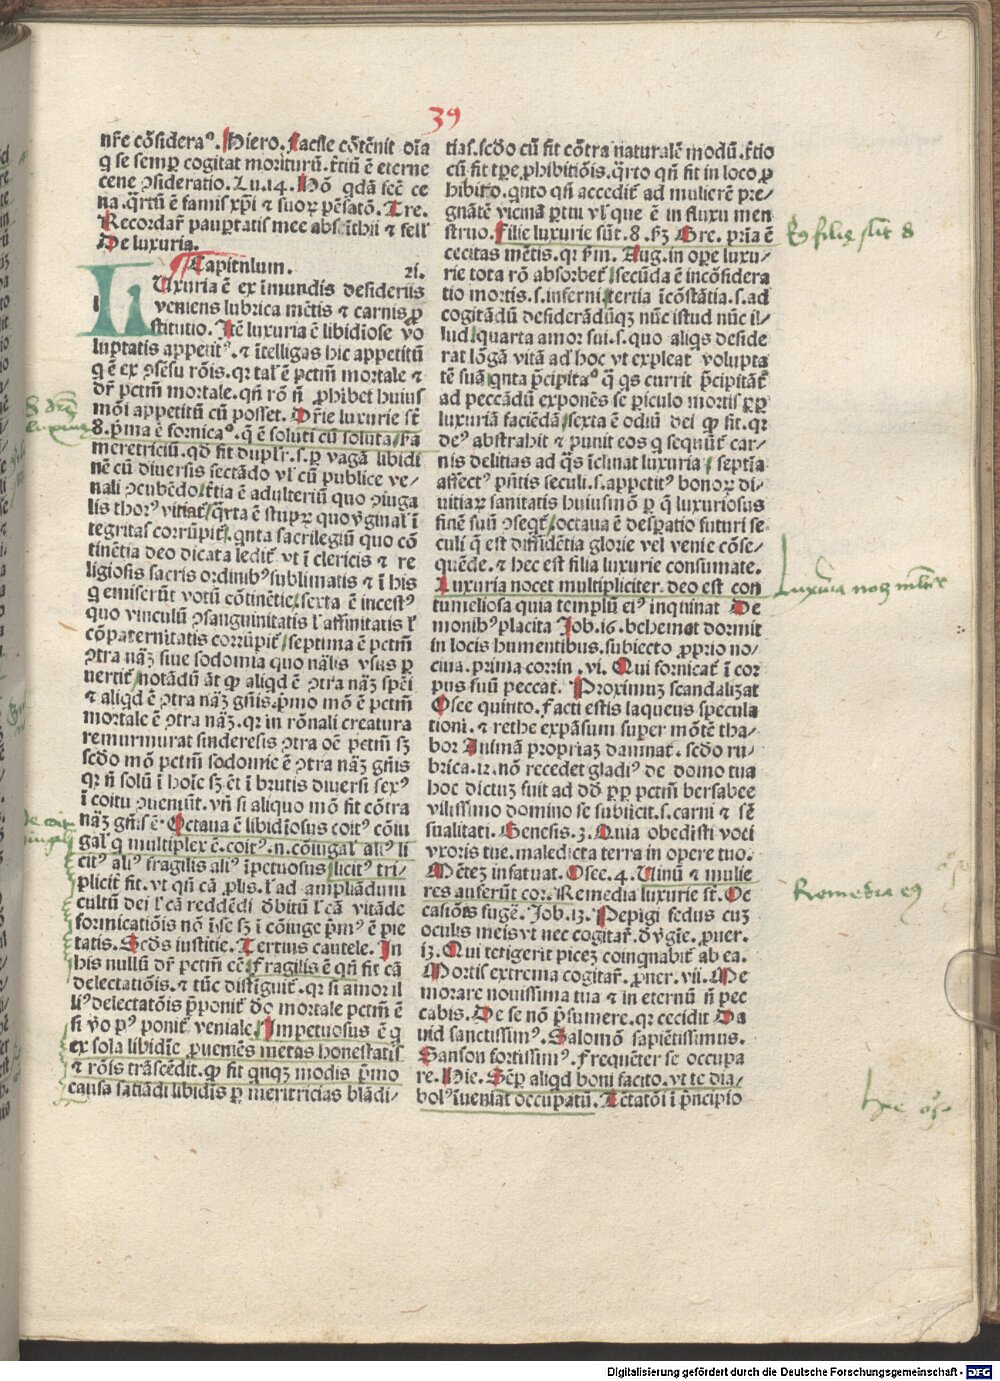 39
nr̄e cōsideraᵒ. Hiero. Facile cōtēnit oīa
q̄ se semꝑ cogitat moriturū. t̄tiū ē eterne
cene ↄsideratio. Lu. 14. Hō qdā fēc ce
na. q̄rtū ē famis xp̄i ⁊ suoꝝ pēsatō. Tre.
Recordar̄ paupertatis mee absīthii ⁊ fell̄
De luxuria.
Capitulum. xi.
LUxuria ē ex īmundis desideriis
veniens lubrica mētis ⁊ carnis ꝓ
stitutio. Itē luxuria ē libidīose vo
luptatis appetitꝰ. ⁊ ītelligas hic appetitū
q̄ ē ex ↄsēsu rōis. qꝛ tal̄ ē pctm̄ mortale ⁊
dr̄ pctm̄ mortale. qn̄ rō n̄ ꝓhibet huius
mōi appetitū cū posset. Spē̄ luxurie st̄
8. p̄ma ē fornicaᵒ. q̄ ē soluti cū soluta. scd̄a
meretriciū. qd̄ fit duplr̄. s. ꝑ vagā libidi
nē cū diuersis sectādo vl̄ cū publice ve/
nali ↄcubēdo. t̄tia ē adulteriū quo ↄiuga
lis thorꝰ vitiat̄. q̄rta ē stupꝝ quo v̄ginal̄ ī
tegritas corrūpit̄. qnta sacrilegiū quo cō
tinētia deo dicata ledit̄ vt ī clericis ⁊ re
ligiosis sacris ordinibꝰ sublimatis ⁊ ī his
q̄ emiserūt votū cōtinētie. sexta ē incestꝰ
quo vinculū ↄsanguinitatis l̄ affinitatis l̄
cōpaternitatis corrūpit̄. septima ē pctm̄
ↄtra nāꝫ siue sodomia quo nālis vsus ꝑ
uertit̄. notādū āt qꝫ aliqd ē ↄtra nāꝫ spēi
⁊ aliqd ē ↄtra nāꝫ gn̄is. p̄mo mō ē pctm̄
mortale ē ↄtra nāꝫ. qꝛ in rōnali creatura
remurmurat sinderesis ↄtra oē pctm̄ sꝫ
scdo mō pctm̄ sodomie ē ↄtra nāꝫ gn̄is
qꝛ n̄ solū ī hoīe sꝫ ēt ī brutis diuersi sexꝰ
ī coitu ↄueniūt. vn̄ si aliquo mō fit cōtra
nāꝫ gn̄is ē. Octaua ē libidīosus coitꝰ cōiu
gal̄ q̄ multiplex ē. coitꝰ. n. cōiugal̄ aliꝰ li
citꝰ aliꝰ fragilis aliꝰ īpetuosus. licitꝰ tri/
plicit̄ fit. vt qn̄ cā ꝓlis. l̄ ad ampliādum
cultū dei l̄ cā reddēdi d̄bitū l̄ cā vitāde
fornicatiōis nō ī se sꝫ ī cōiuge p̄mꝰ ē pie
tatis. Scd̄s iustitie. Tertius cautele. In
his nullū dr̄ pctm̄ eē. Fragilis ē qn̄ fit cā
delectatiōis. ⁊ tūc distīguit̄. qꝛ si amor il
liꝰ delectatōis p̄ponit̄ deo mortale pctm̄ ē
si v̄o pꝰ ponit̄ veniale. Impetuosus ē q̄
ex sola libidīe ꝓueniēs metas honestatis
⁊ rōis trāscēdit. qꝫ fit qnqꝫ modis p̄mo
causa satiādi libidīs ꝑ meritricias blādi/
tias. scdo cū fit cōtra naturalē modū. t̄tio
cū fit tp̄e ꝓhibitiōis. q̄rto qn̄ fit in loco ꝓ
hibito. qnto qn̄ accedit̄ ad mulierē pre/
gnātē vicinā partui vl̄ que ē in fluxu men
struo. Filie luxurie sūt. 8. sꝫ Gre. pria ē
cecitas mētis. qꝛ sm̄. Aug. in oꝑe luxu/
rie tota rō absorbet̄. secūda ē incōsidera
tio mortis. s. inferni. tertia īcōstātia. s. ad
cogitādū desiderādūqꝫ nūc istud nūc il/
lud. quarta amor sui. s. quo aliqs deside
rat lōgā vitā ad hoc vt expleat volupta
tē suā. qnta p̄cipitaᵒ q̄ qs currit p̄cipitāt̄
ad peccādū exponēs se piculo mortis ꝓꝑ
luxuriā faciēdā. sexta ē odiū dei qꝫ fit. qꝛ
deꝰ abstrahit ⁊ punit eos q̄ sequūt̄ car/
nis delitias ad q̄s īclinat luxuria. septīa
affectꝰ p̄ntis seculi. s. appetitꝰ bonoꝝ di/
uitiaꝝ sanitatis huiusmō ꝑ q̄ luxuriosus
finē suū ↄseqt̄. octaua ē despatio futuri se/
culi q̄ est diffidētia glorie vel venie cōse/
quēde. ⁊ hec est filia luxurie consumate.
Luxuria nocet multipliciter. deo est con
tumeliosa quia templū eiꝰ inquinat De
monibꝰ placita Job. 16. behemot dormit
in locis humentibus. subiecto ꝓprio no/
ciua. prima corrin. vi. Qui fornicat̄ ī cor
pus suū peccat. Proximuꝫ scandalizat
Osee quinto. Facti estis laqueus specula
tioni. ⁊ rethe expāsum super mōtē tha/
bor Animā propriaꝫ damnat. scdo ru/
brica. 12. nō recedet gladiꝰ de domo tua
hoc dictuꝫ fuit ad dd̄ ꝓꝑ pctm̄ bersabee
vilissimo domino se subiicit. s. carni ⁊ sē
sualitati. Genesis. 3. Quia obedisti voci
vxoris tue. maledicta terra in opere tuo.
Mētez infatuat. Osee. 4. Uinū ⁊ mulie
res auferūt cor. Remedia luxurie st̄. Oc
casiōis fuge. Job. 13. Pepigi fedus cuꝫ
oculis meis vt nec cogitar̄. d v̄gīe. ꝓuer.
13. Qui tetigerit piceꝫ coinqnabit̄ ab ea.
Mortis extrema cogitar̄. ꝓuer. vii. Me
morare nouissima tua ⁊ in eternū n̄ pec
cabis. De se nō p̄sumere. qꝛ cecidit Da
uid sanctissimꝰ. Salomō sapiētissimus.
Sanson fortissimꝰ. Frequēter se occupa
re. Hie. Sēꝑ aliqd boni facito. vt te dia/
bolꝰ īueniat occupatū. Tētatōi ī p̄ncipio
Eꝫ filiȩ sūt 8
Luxuria nocꝫ mltr̄
Remedia eꝫ
Digitalisierung gefördert durch die Deutsche Forschungsgemeinschaft - DFG